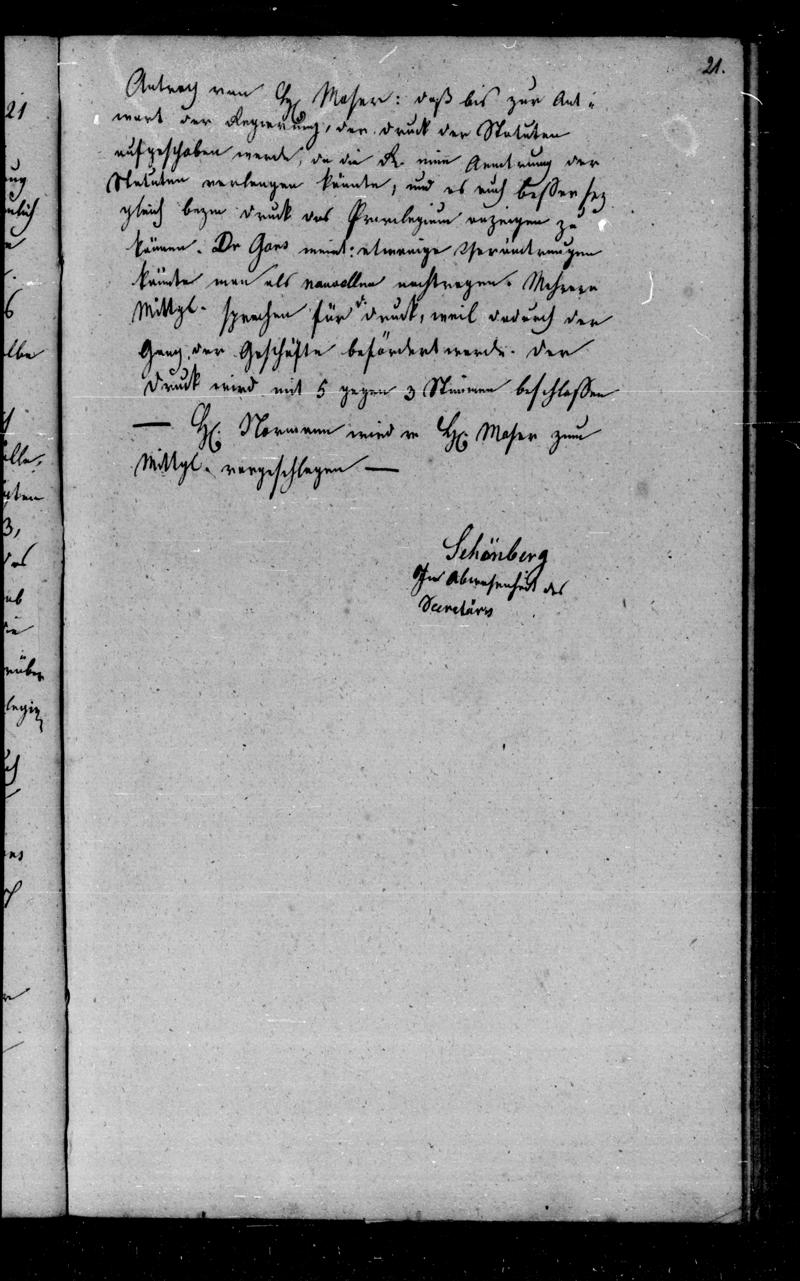 21.
Antrag von H. Moser: daß bis zur Ant-
wort der Regierung, der Druck der Statuten
aufgeschoben werde, da die R. eine Aendrung der
Statuten verlangen könnte, und es auch besser sey
gleich beym Druck das Privilegium anzeigen zu
können. Dr Gans meint: etwanige Verändrungen
könnte man als novellen nachtragen. Mehrere
Mittgl. sprechen für d. Druck, weil dadurch der
Gang der Geschäfte befördert werde. Der
Druck wird mit 5 gegen 3 Stimmen beschlossen
— H. Normann wird v H. Moser zum
Mittgl. vorgeschlagen —
Schönberg
In Abwesenheit des
Secretärs
21
ung
lbe
3,
das
ub
die